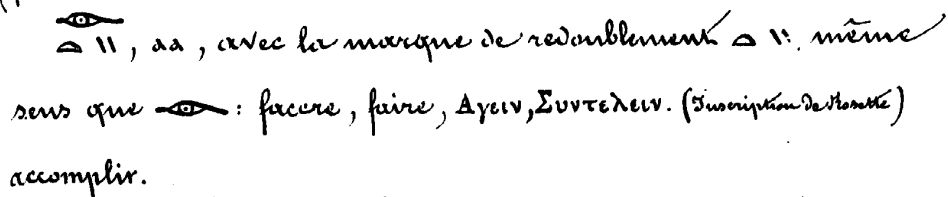 𓁹𓏏𓏭, aa, avec la marque de redoublement 𓏏𓏭. même
sens que 𓁹 : facere, faire, Αγειν, Συντελειν. (Inscription de Rosette)
accomplir.